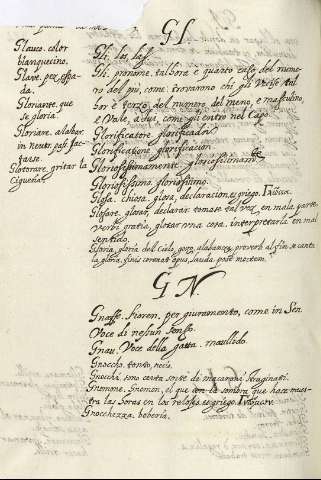 Gl.
Glauco. color
blanquecino.
Glave. pez, espa-
da.
Gloriante. que
se gloria.
Gloriare. alabar,
in neutr. pass. Jac-
tarse.
Glotorare. gritar la
Cigueña.
Gli. los, las.
Gli. pronome, tal hora è quarto caso del nume-
ro del più, come, trovanno chi gli Vccise tal
hor è terzo, del numero del meno, è masculino,
è Vale, à due, come gli entrò nel Capo.
Glorificatore. glorificador.
Glorificatione. glorificacion.
Gloriosissimamente. gloriosissimamente.
Gloriosissimo. gloriosissimo.
Glosa. chiosa, glosa, declaracion, es griego.
Glosare. glosar, declarar, tomase tal vez, en mala parte
verbi gratia, glotar una cosa, interpretarla en mal
sentido.
Gloria. gloria del cielo, gozo, alabança, proverb. al fin se canta
la gloria, finis coronat opus, lauda post mortem.
GN.
Gnaffe. fioren. per giuramento, come in Sen.
Voce di nessun senso.
Gnau. Voce della gatta. maullido.
Gnoccho. tonto, necio.
Gnocchi. una certa sorte di macaroni
Gnomone. Gnomon, el que con la sombra que hace mues-
tra las horas en los reloxes, es griego.
Gnocchezza. boberia.